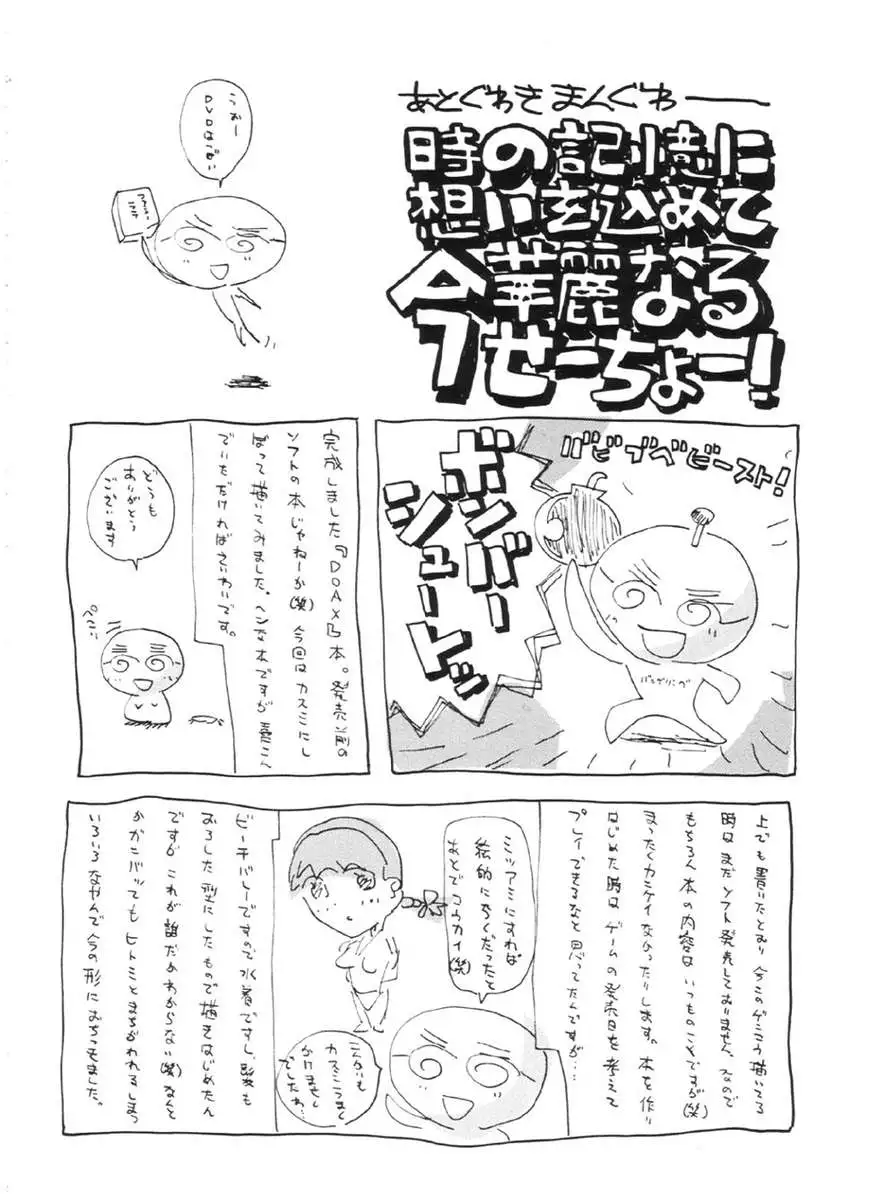 あとぐわきまんぐわ――
時の記憶に
想いを込めて
今華麗なる
せーちょー!
うおー
DVDは
バビブベビースト!
ボンバー
シュート
バンゲリング
完成しました『DOAX』本。発売前の
ソフトの本じゃねーか(笑)今回はカスミにし
ぼって描いてみました。ヘンな本ですが喜こん
でいただければさいわいです。
どうも
ありがとう
ございます
ぺこ
上でも書いたとおり今このゲンコウ描いてる
時はまだソフト発売しておりません。なので
もちろん本の内容はいつものことですが(笑)
まったくカンケイなかったりします。本を作り
はじめた時はゲームの発売日を考えて
プレイできるなと思ってたんですが…
ミツアミにすれば
絵的にらくだったと
あとでコウカイ(笑)
こんかいも
カスミうまく
かけませんでしたわ…
ビーチバレーですので水着ですし、髪も
おろした型にしたもので描きはじめたん
ですがこれが誰だかわからない(笑)なんと
かガンバッてもヒトミとまちがわれるしまつ
いろいろなやんで今の形におちつきました。